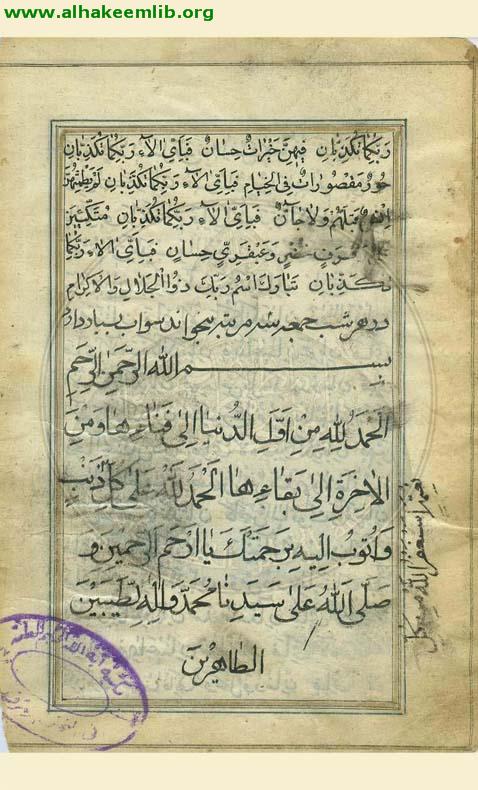 www.alhakeemlib.org
ربكما تكذبان فيهن خيرات حسان فبأي الآء ربكما تكذبان
حور مقصورات في الخيام فبأي الآء ربكما تكذبان لم يطمثهن
انس قبلهم ولا جان فبأي الآء ربكما تكذبان متكئين
رفرف خضر وعبقري حسان فبأي الآء ربكما
تكذبان تبارك اسم ربك ذوا الجلال والاكرام
در هر شب جمعه سه مرتبه بخواند سواب بسيار دارد
بسم الله الرحمن الرحيم
الحمد لله من اول الدنيا الى فناءها ومن
الاخرة الى بقاءها الحمد لله على كل ذنب
واتوب اليه برحمتك يا ارحم الراحمين و
صلى الله على سيدنا محمد واله لطيبين
الطاهرين
استغفر الله من كل